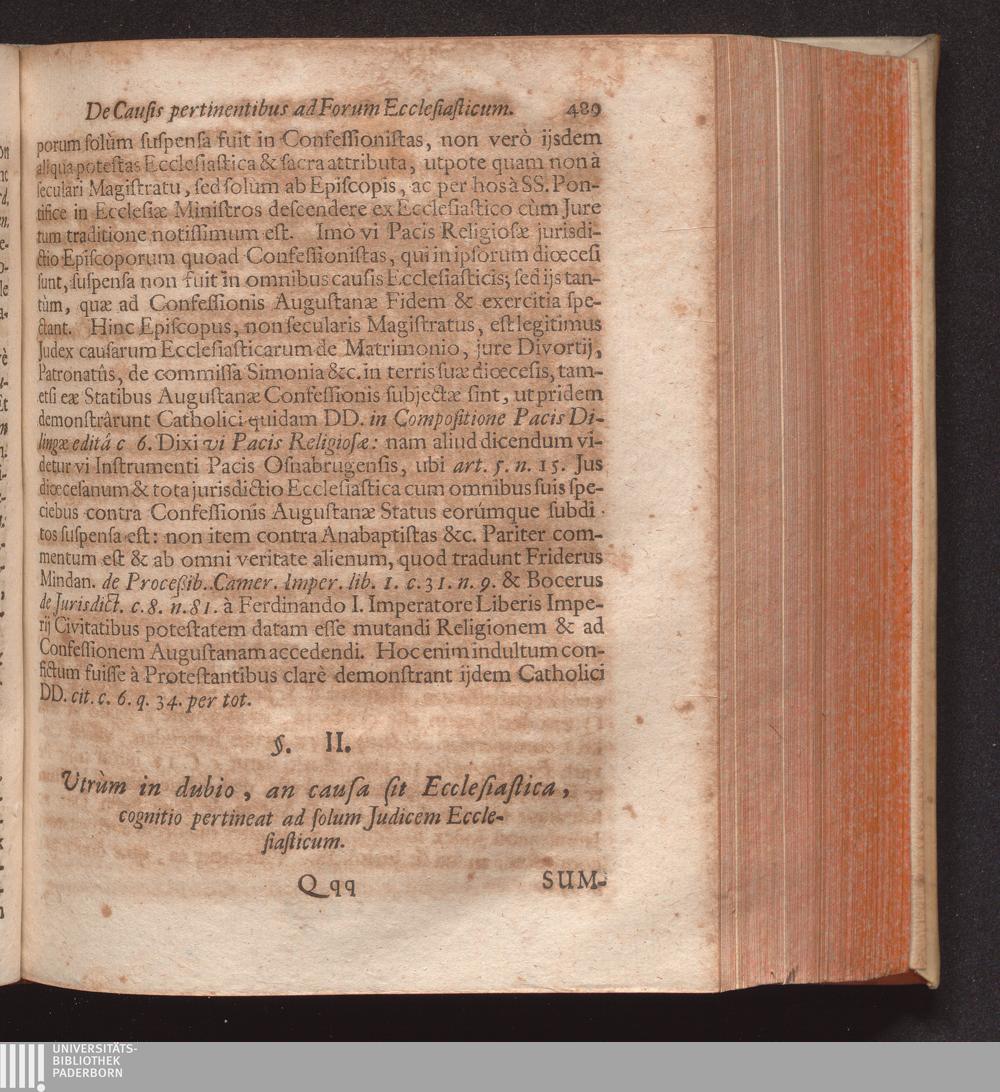 De Cauſis pertinentibus ad Forum Eccleſiaſticum. 489
porum ſolùm ſuſpenſa fuit in Confeſſioniſtas, non verò ijsdem
aliqua poteſtas Eccleſiaſtica & ſacra attributa, utpote quam non à
ſeculari Magiſtratu, ſed ſolùm ab Epiſcopis, ac per hos à SS. Pon-
tifice in Eccleſiæ Miniſtros deſcendere ex Eccleſiaſtico cùm Jure
tum traditione notiſſimum eſt. Imò vi Pacis Religioſæ jurisdi-
ctio Epiſcoporum quoad Confeſſioniſtas, qui in ipſorum diœceſi
ſunt, ſuſpenſa non fuit in omnibus cauſis Eccleſiaſticis; ſed ijs tan-
tùm, quæ ad Confeſſionis Auguſtanæ Fidem & exercitia ſpe-
ctant. Hinc Epiſcopus, non ſecularis Magiſtratus, eſt legitimus
Judex cauſarum Eccleſiaſticarum de Matrimonio, jure Divortij,
Patronatûs, de commiſſa Simonia &c. in terris ſuæ diœceſis, tam-
etſi eæ Statibus Auguſtanæ Confeſſionis ſubjectæ ſint, ut pridem
demonſtrârunt Catholici quidam DD. in Compoſitione Pacis Di-
lingæ editâ c 6. Dixi vi Pacis Religioſæ: nam aliud dicendum vi-
detur vi Inſtrumenti Pacis Oſnabrugenſis, ubi art. 5. n. 15. Jus
diœceſanum & tota jurisdictio Eccleſiaſtica cum omnibus ſuis ſpe-
ciebus contra Confeſſionis Auguſtanæ Status eorúmque ſubdi-
tos ſuſpenſa eſt: non item contra Anabaptiſtas &c. Pariter com-
mentum eſt & ab omni veritate alienum, quod tradunt Friderus
Mindan. de Proceßib. Camer. Imper. lib. 1. c. 31. n. 9. & Bocerus
de Jurisdict. c. 8. n. 81. à Ferdinando I. Imperatore Liberis Impe-
rij Civitatibus poteſtatem datam eſſe mutandi Religionem & ad
Confeſſionem Auguſtanam accedendi. Hoc enim indultum con-
fictum fuiſſe à Proteſtantibus clarè demonſtrant ijdem Catholici
DD. cit. c. 6. q. 34. per tot.
§. II.
Utrùm in dubio, an cauſa ſit Eccleſiaſtica,
cognitio pertineat ad ſolum Judicem Eccle-
ſiaſticum.
Qqq SUM-
UNIVERSITÄTS-
BIBLIOTHEK
PADERBORN